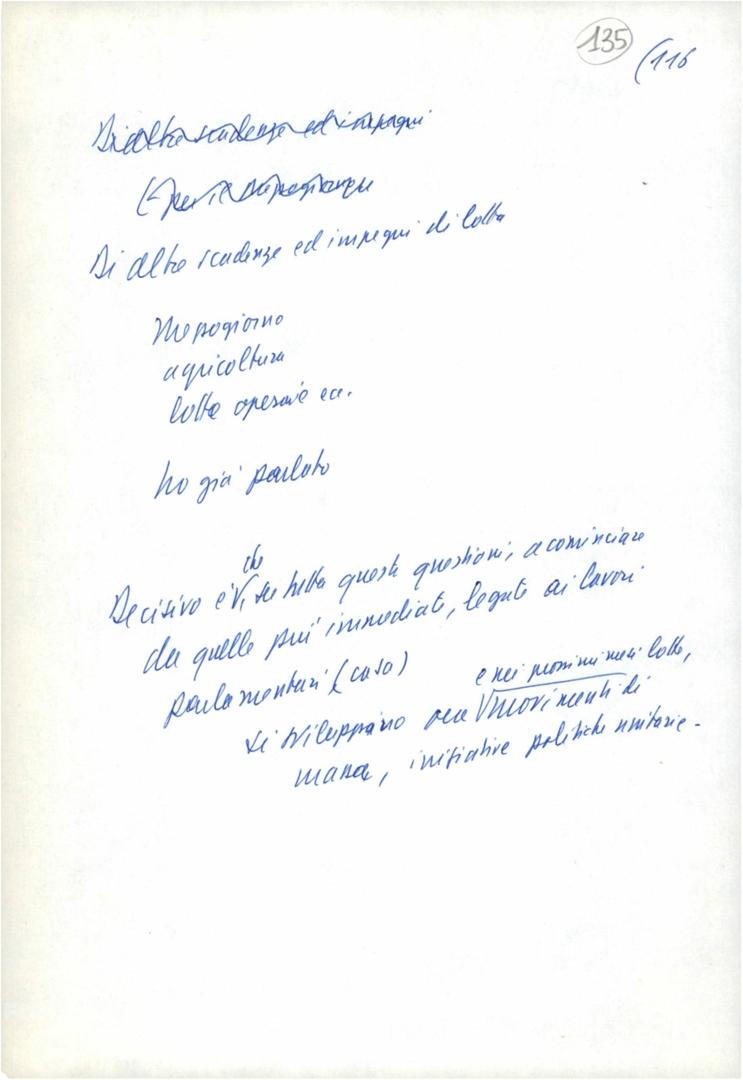 135
(116
Di altre scadenze ed impegni
Di altre scadenze ed impegni di lotta
Mezzogiorno
agricoltura
lotte operaie ecc.
ho già parlato
che
Decisivo è, su tutte queste questioni, a cominciare
da quelle più immediate, legate ai lavori
parlamentari (casa)
e nei prossimi mesi lotte,
si sviluppino ora movimenti di
massa, iniziative politiche unitarie.